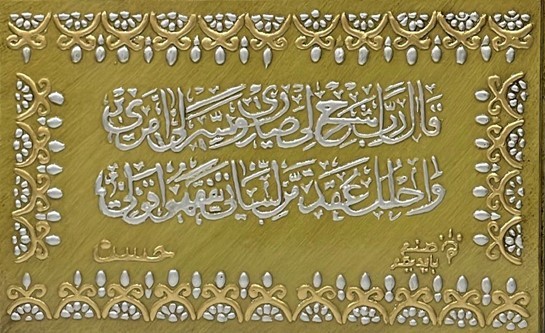 قال رب اشرح لي صدري ويسر لي امري
واحلل عقدة من لساني يفقهوا قولي
حسن